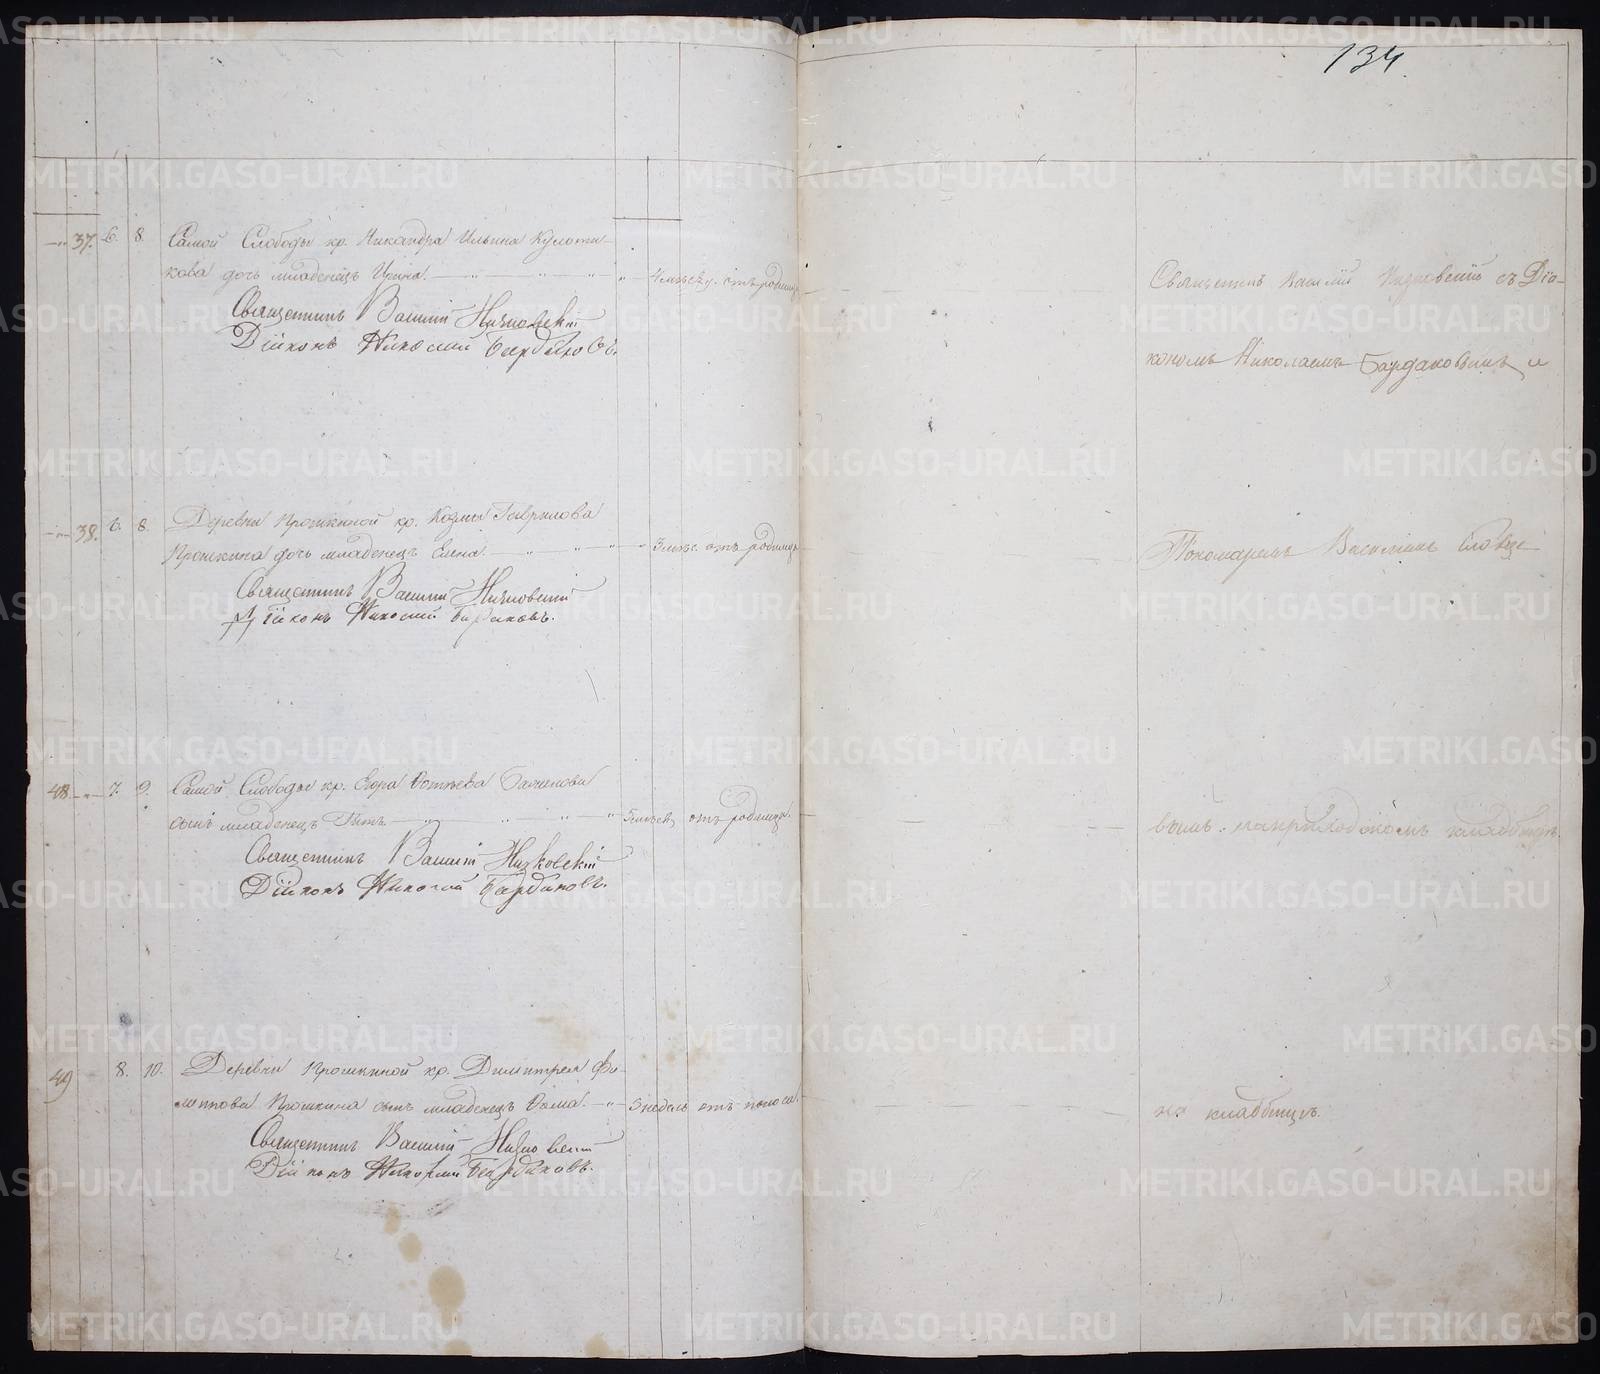 134.
37. 6. 8. Самой Слободы кр. Никандра Ильина
дочь младенецъ Ирина 4 отъ родимца
Священникъ Василій Низковскій
Діяконъ Николай Бардаковъ.
Священникъ Василій Низковскій съ Діа-
кономъ Николаемъ Бардаковымъ и
38. 6. 8. Деревни Прошкиной кр. Козмы Гаврилова
Прошкина дочь младенецъ Елена 3 мѣс. отъ родимца
Священникъ Василій Низковскій
Діяконъ Николай Бардаковъ.
Пономаремъ Василіемъ
48. 7. 9. Самой Слободы кр. Егора
сынъ младенецъ отъ родимца.
Священникъ Василій Низковскій
Діяконъ Николай Бардаковъ.
вымъ. на приходскомъ кладбищѣ.
49 8. 10. Деревни Прошкиной кр. Димитрея Фи-
липпова Прошкина сынъ младенецъ Ѳома. 5 недель отъ поноса.
Священникъ Василій Низковскій
Діяконъ Николай Бардаковъ.
на кладбищѣ.
METRIKI.GASO-URAL.RU